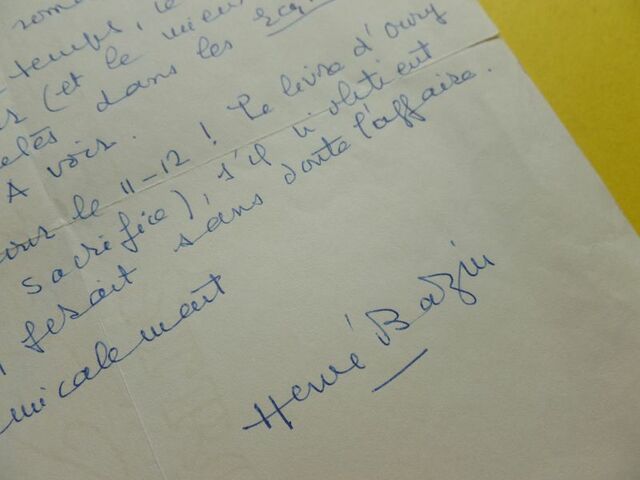 temps, le
(et le mieux
dans les
A voir.
le 11-12 ! Le livre d'Oury
sacrifice), s'il n'obtient
ferait sans doute l'affaire.
micalement
Hervé Bazin